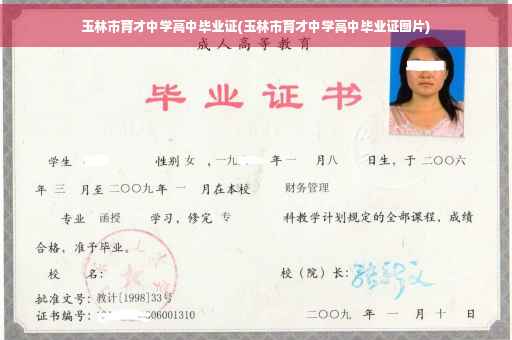 玉林市育才中学高中毕业证(玉林市育才中学高中毕业证图片)
成人高等教育
毕业证书
学生 性别 女 ，一九 年 一 月 八 日生，于 二〇〇六
年 三 月至 二〇〇九 年 一 月在本校 财务管理
专业 函授 学习，修完 专 科教学计划规定的全部课程，成绩
合格，准予毕业。
校 名： 校（院）长：
批准文号：教计[1998]33号
证书编号： 06001310 二〇〇九 年 一 月 十 日